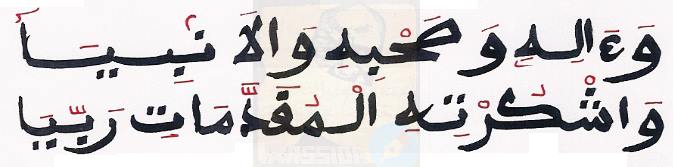 وَءَالِهِ وَصَحْبِهِ وَالَانْبِيَآ
وَاشْكُرْتِهِ الْمُقَدَّمَاتِ رَبِّيَا